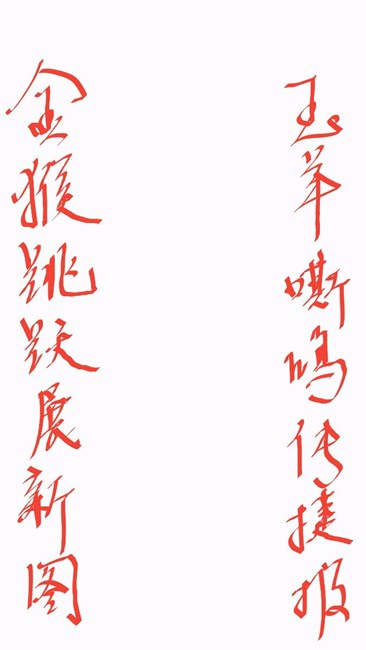 玉羊嘶鸣传捷报
金猴跳跃展新图